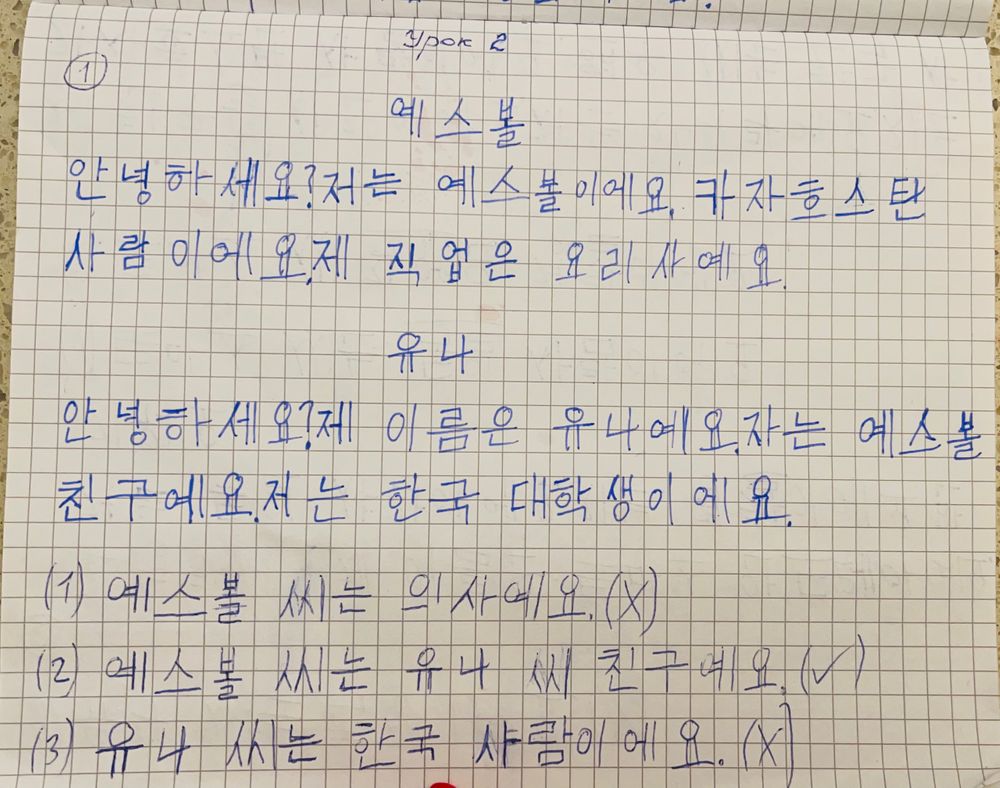 Урок 2
①
예스볼
안녕하세요?저는 예스볼이에요. 카자흐스탄
사람이에요.제 직업은 요리사예요.
유나
안녕하세요?제 이름은 유나예요.자는 예스볼
친구예요.저는 한국 대학생이에요.
(1) 예스볼 씨는 의사예요.(X)
(2) 예스볼 씨는 유나 씨 친구예요.(✓)
(3) 유나 씨는 한국 사람이에요.(X)